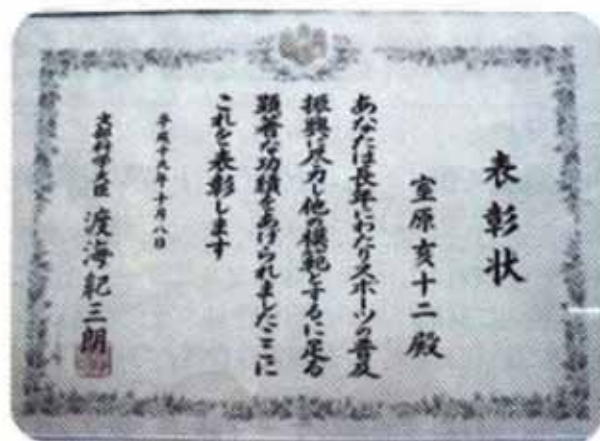 表彰状
室原亥十二殿
あなたは長年にわたりスポーツの普及
振興に尽力し他の模範とするに足る
顕著な功績をあげられましたここに
これを表彰します
平成十九年十月八日
文部科学大臣 渡海紀三朗